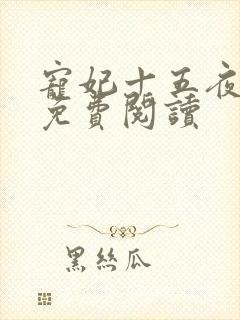 寵妃十五夜
免費閱讀
黑絲瓜